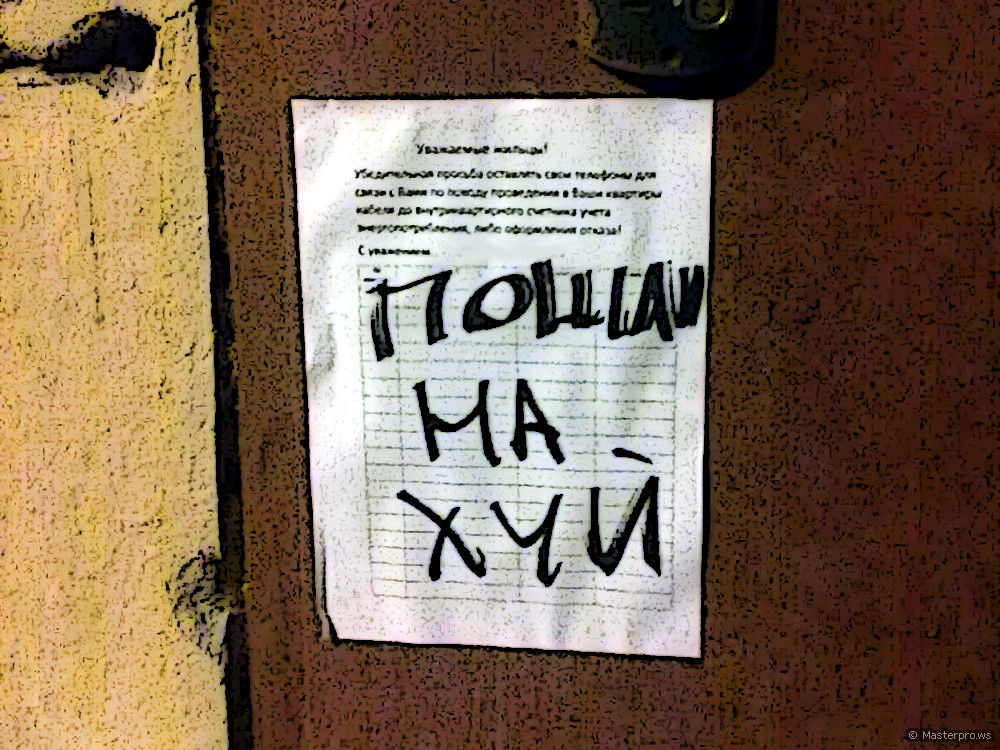 Уважаемые жильцы!
Убедительная просьба оставлять свои телефоны для
связи с Вами по поводу проведения в Ваши квартиры
кабеля до внутриквартирного счетчика учета
энергопотребления, либо оформления отказа!
С уважением
ПОШЛИ
НА
ХУЙ
© Masterpro.ws